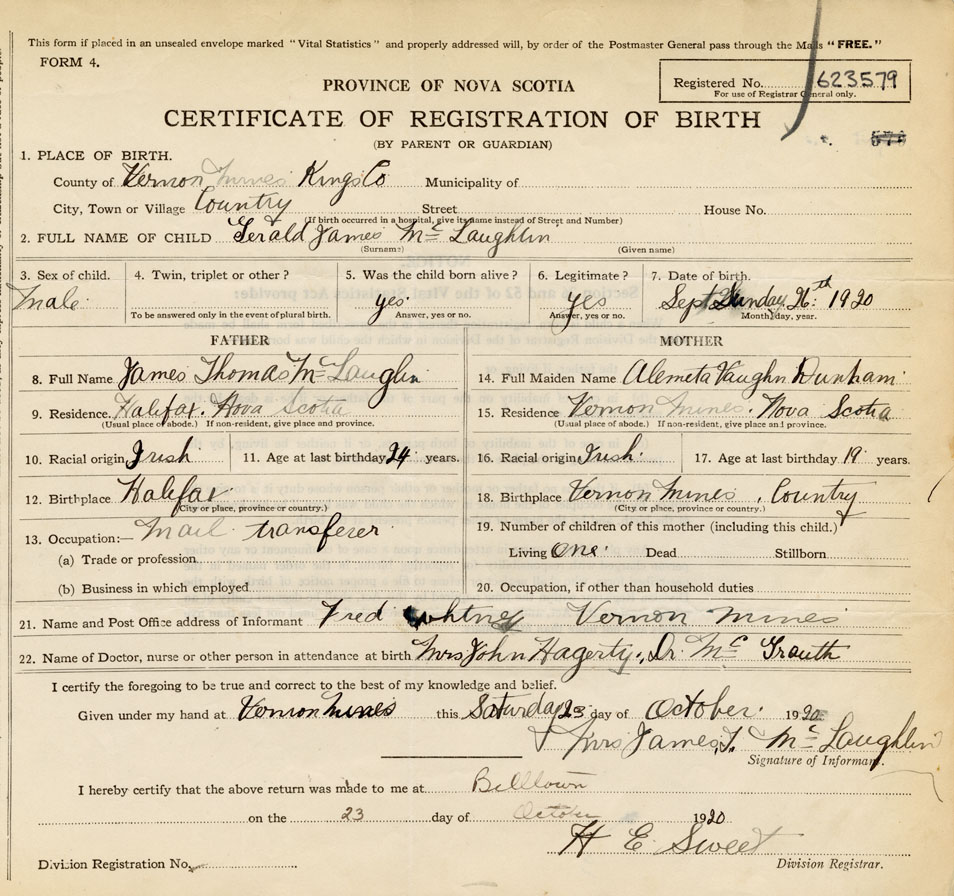 This form if placed in an unsealed envelope marked "Vital Statistics" and properly addressed will, by order of the Postmaster General pass through the Mails "FREE."
FORM 4.
Registered No. 623579
For use of Registrar General only.
PROVINCE OF NOVA SCOTIA
CERTIFICATE OF REGISTRATION OF BIRTH
(BY PARENT OR GUARDIAN)
1. PLACE OF BIRTH.
County of Vernon Mines Kings Co Municipality of
City, Town or Village Country Street House No.
(If birth occurred in a hospital, give its name instead of Street and Number)
2. FULL NAME OF CHILD Gerald James Mc Laughlin
(Surname) (Given name)
3. Sex of child. 4. Twin, triplet or other? 5. Was the child born alive? 6. Legitimate? 7. Date of birth.
Male yes yes Sept Sunday 26th 1920
To be answered only in the event of plural birth. Answer, yes or no. Answer, yes or no. Month, day, year.
FATHER MOTHER
8. Full Name James Thomas Mc Laughlin 14. Full Maiden Name Alemeta Vaughn Dunham
9. Residence. Halifax. Nova Scotia 15. Residence Vernon Mines. Nova Scotia
(Usual place of abode.) If non-resident, give place and province. (Usual place of abode.) If non-resident, give place and province.
10. Racial origin Irish 11. Age at last birthday 24 years. 16. Racial origin Irish. 17. Age at last birthday 19 years.
12. Birthplace Halifax 18. Birthplace Vernon Mines, Country
(City or place, province or country.) (City or place, province or country.)
13. Occupation:— Mail transferer 19. Number of children of this mother (including this child.)
(a) Trade or profession Living One. Dead Stillborn
(b) Business in which employed 20. Occupation, if other than household duties
21. Name and Post Office address of Informant Fred Vernon Mines
22. Name of Doctor, nurse or other person in attendance at birth Mrs John Hagerty., Dr. Mc
I certify the foregoing to be true and correct to the best of my knowledge and belief.
Given under my hand at Vernon Mines this Saturday 23 day of October. 1920
Mrs James T. Mc Laughlin
Signature of Informant.
I hereby certify that the above return was made to me at Billtown
on the 23 day of October 1920
H E Sweet
Division Registration No. Division Registrar.